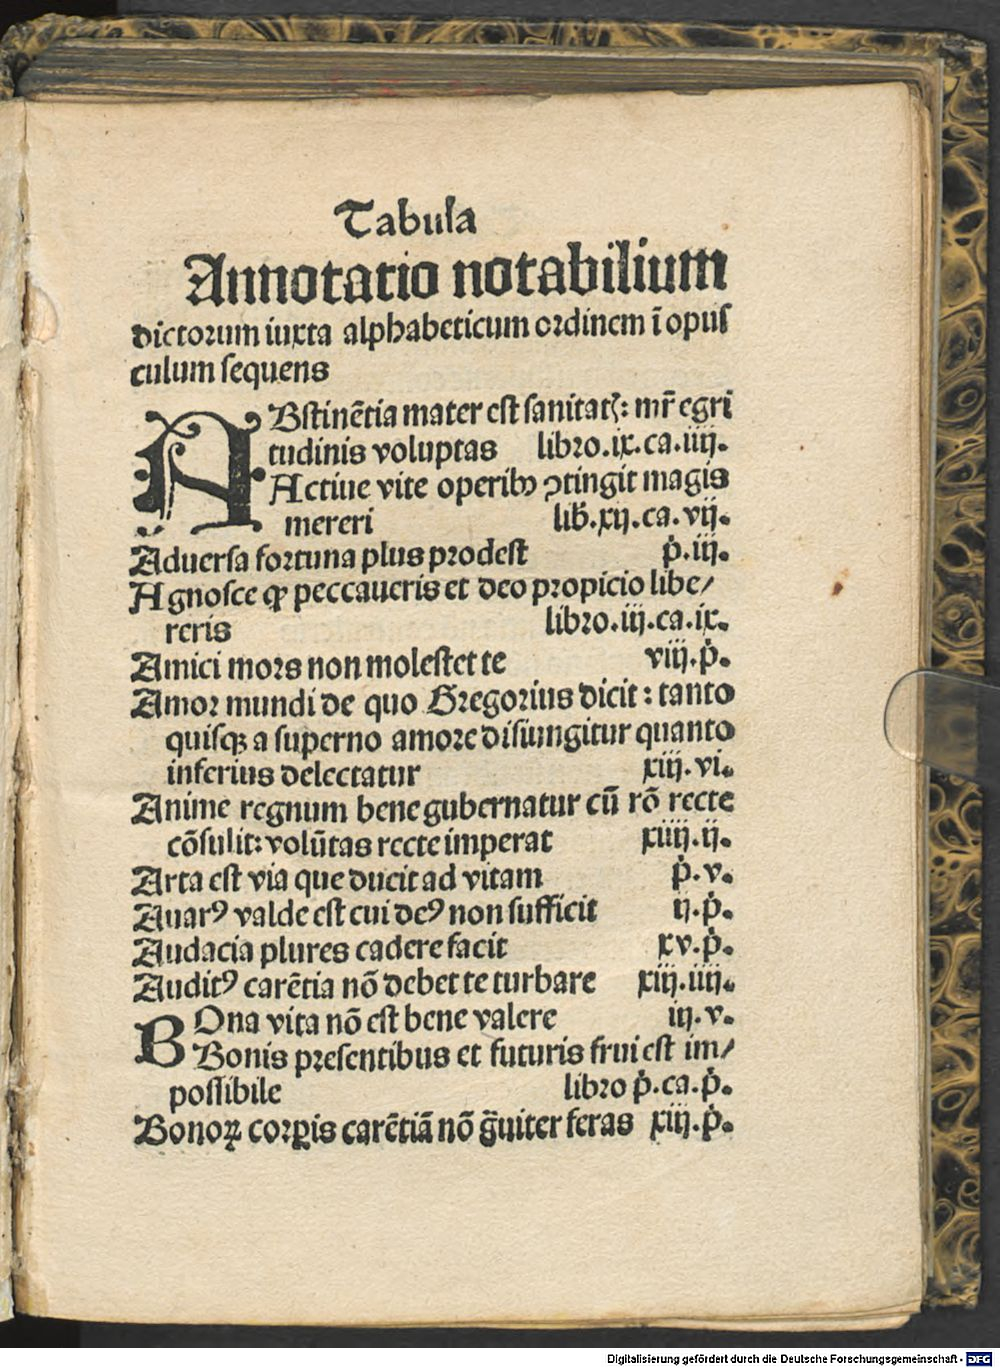 Tabula
Annotatio notabilium
dictorum iuxta alphabeticum ordinem ī opus
culum sequens
ABstinētia mater est sanitatꝭ: mr̄ egri
tudinis voluptas libro.ix.ca.iiij.
Actiue vite operibꝰ ↄtingit magis
mereri lib̄.xij.ca.vij.
Aduersa fortuna plus prodest ṗ.iij.
Agnosce ꝙ peccaueris et deo propicio libe/
reris libro.iij.ca.ix.
Amici mors non molestet te viij.ṗ.
Amor mundi de quo Gregorius dicit: tanto
quisqꝫ a superno amore disiungitur quanto
inferius delectatur xiij.vi.
Anime regnum bene gubernatur cū rō recte
cōsulit: volūtas recte imperat xiiij.ij.
Arta est via que ducit ad vitam ṗ.v.
Auarꝰ valde est cui deꝰ non sufficit ij.ṗ.
Audacia plures cadere facit xv.ṗ.
Auditꝰ carētia nō debet te turbare xiij.iiij.
BOna vita nō est bene valere iij.v.
Bonis presentibus et futuris frui est im/
possibile libro ṗ.ca.ṗ.
Bonoꝝ corꝑis carētiā nō g̃uiter feras xiij.ṗ.
Digitalisierung gefördert durch die Deutsche Forschungsgemeinschaft - DFG